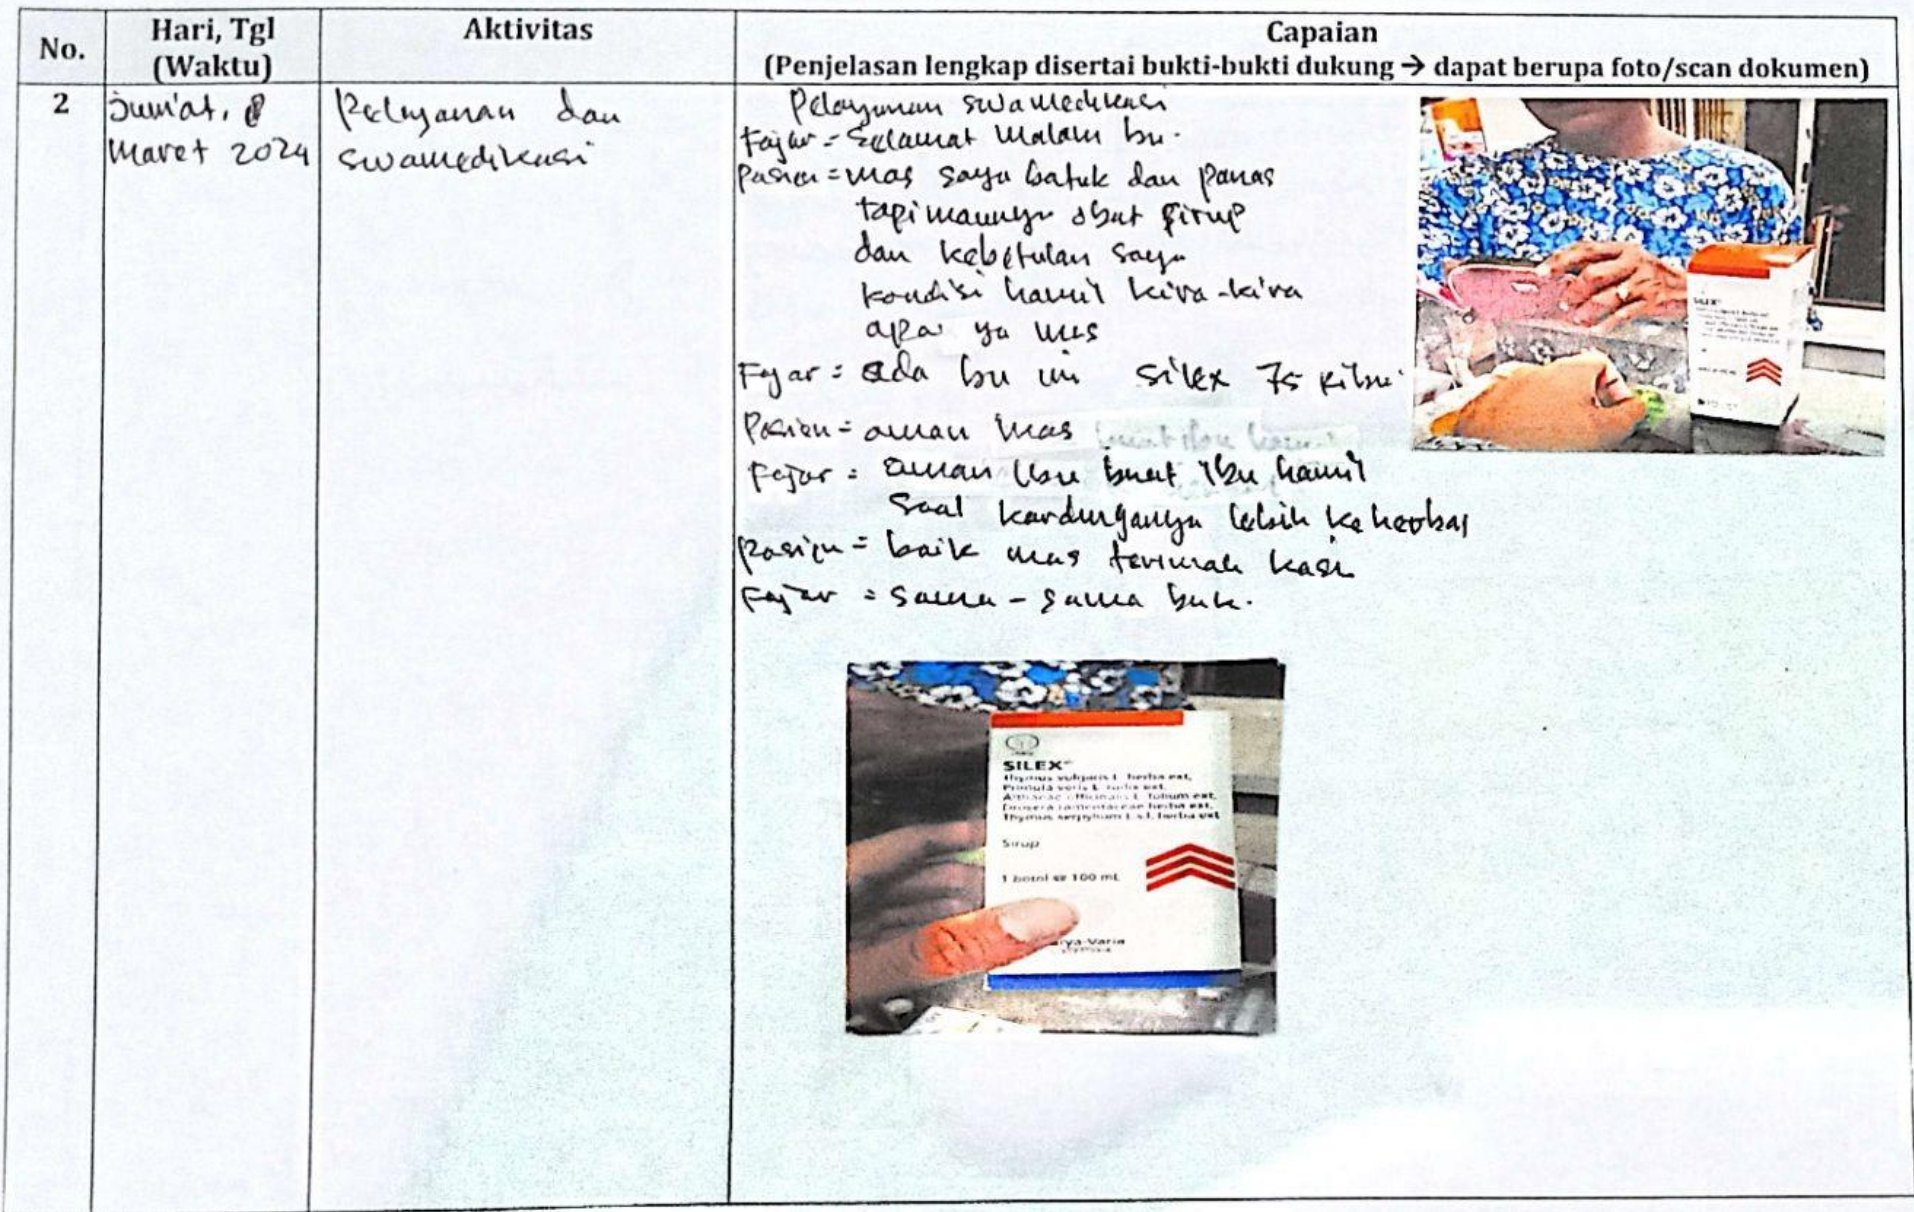 No.
Hari, Tgl
(Waktu)
Aktivitas
Capaian
(Penjelasan lengkap disertai bukti-bukti dukung → dapat berupa foto/scan dokumen)
2
Jum'at, 8
Maret 2024
Pelayanan dan
swamedikasi
Pelayanan swamedikasi
Fajar = Selamat malam bu.
Pasien = mas saya batuk dan panas
tapi maunya obat sirup
dan kebetulan saya
kondisi hamil kira-kira
apa ya mas
Fajar = ada bu ini silex 75 ribu.
Pasien = aman mas
Fajar = aman ibu buat ibu hamil
Soal kandunganya lebih ke herbal
Pasien = baik mas terimah kasi
Fajar = sama - sama buk.
SILEX
SILEX
Thymus vulgaris L. herba ext,
Primula veris L. radix ext,
Althaeae officinalis L. folium ext,
Drosera ramentaceae herba ext,
Thymus serpyllum L. s.l. herba ext
Sirup
1 botol @ 100 mL
rya-Varia